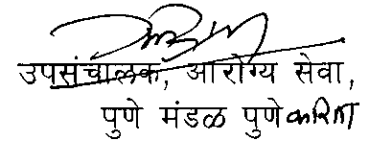 उपसंचालक, आरोग्य सेवा,
पुणे मंडळ पुणे करिता